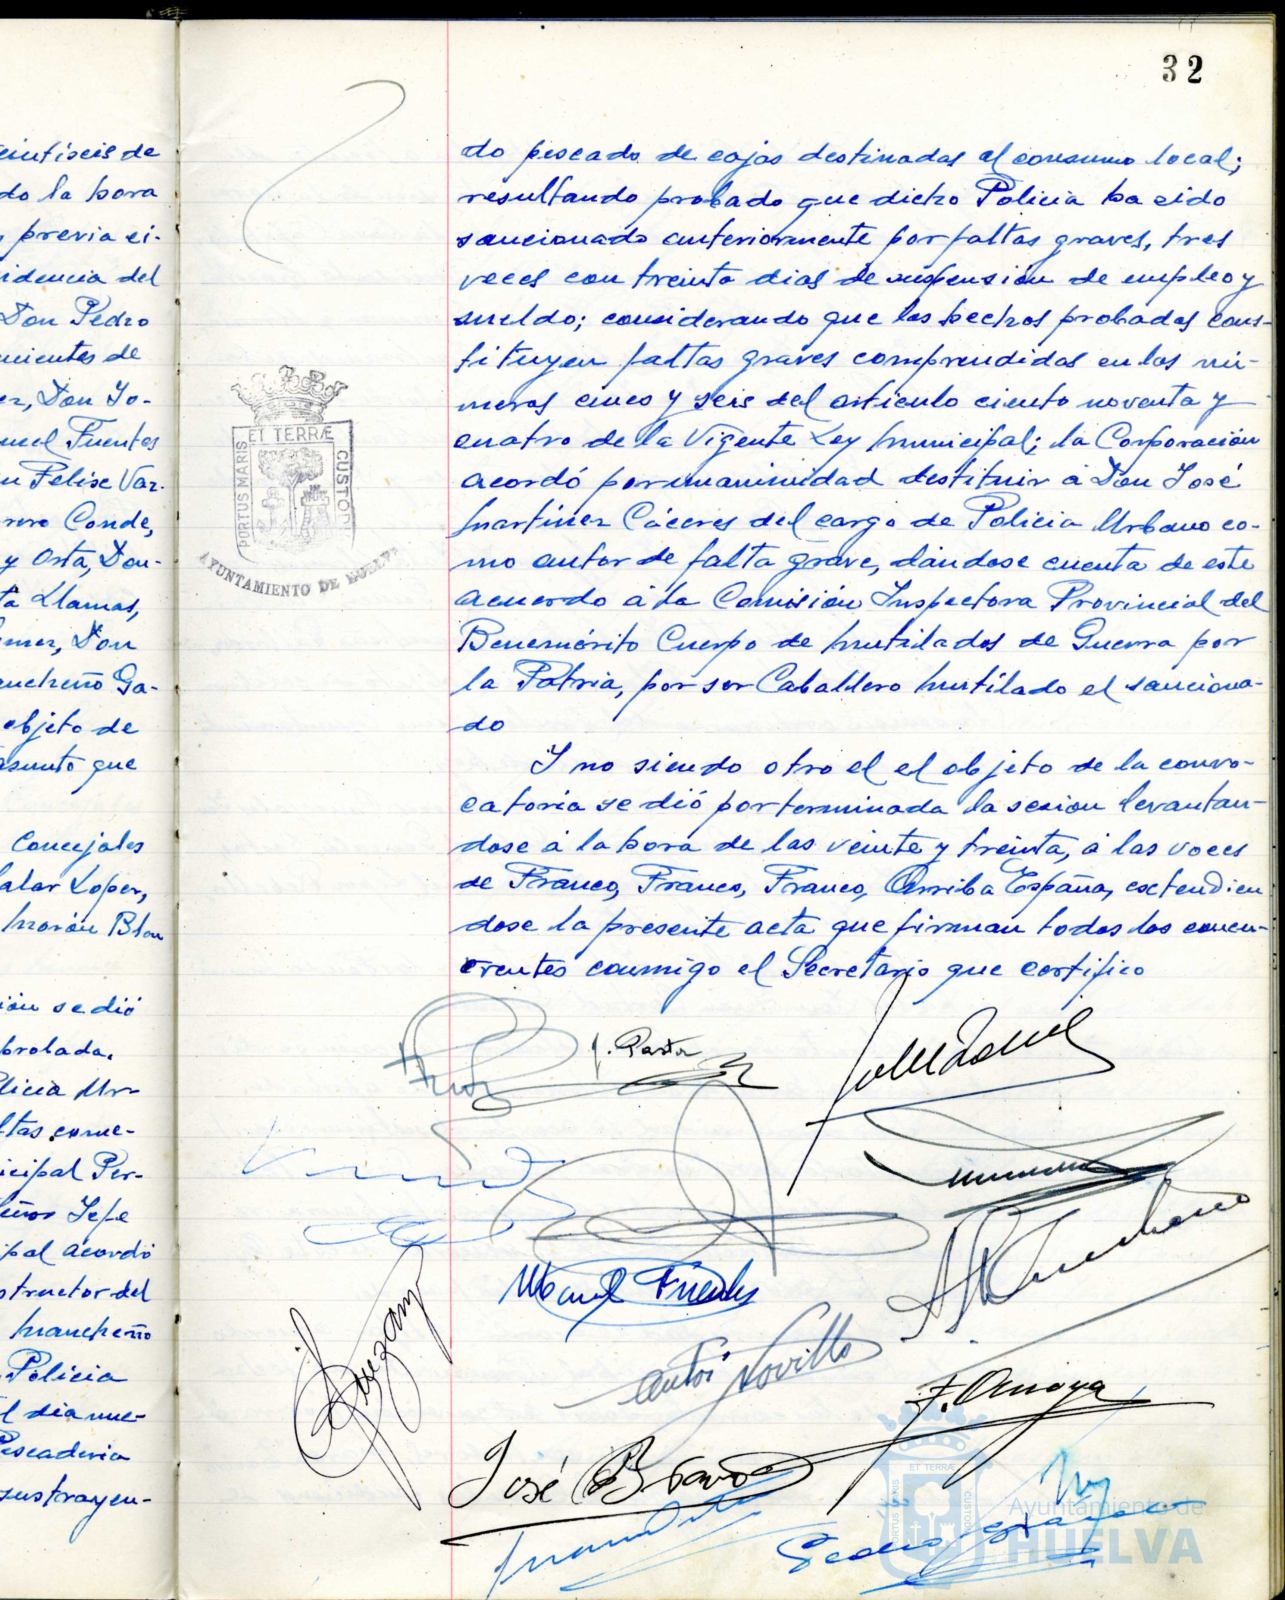 32
eintiseis de
do la hora
y previa ci-
idencia del
Don Pedro
nientes de
ez, Don Jo-
nuel Fuentes
n Felise Vaz-
rero Conde,
y Orta, Don-
ta Llamas,
mez, Don
ancheño Ga-
objeto de
asunto que
Concejales
alar Lopez,
Morón Blan
ión se dió
probada.
olicia Ur-
ltas come-
icipal Per-
eñor Jefe
ipal acordó
structor del
Mancheño
Policia
l dia nue-
Pescaderia
sustrayen-
do pescado de cajas destinadas al consumo local;
resultando probado que dicho Policia ha sido
sancionado anteriormente por faltas graves, tres
veces con treinta dias de suspensión de empleo y
sueldo; considerando que los hechos probados cons-
tituyen faltas graves comprendidas en los nú-
meros cinco y seis del articulo ciento noventa y
cuatro de la Vigente Ley Municipal; la Corporación
acordó por unanimidad destituir á Don José
Martinez Cáceres del cargo de Policia Urbano co-
mo autor de falta grave, dándose cuenta de este
acuerdo á la Comisión Inspectora Provincial del
Benemérito Cuerpo de Mutilados de Guerra por
la Patria, por ser Caballero Mutilado el sanciona-
do
Y no siendo otro el el objeto de la convo-
catoria se dió por terminada la sesion levantan-
dose á la hora de las veinte y treinta, á las voces
de Franco, Franco, Franco, Arriba España, extendien
dose la presente acta que firman todos los concu-
rrentes conmigo el Secretario que certifico
PORTUS MARIS ET TERRÆ CUSTODI
AYUNTAMIENTO DE HUELVA
J. Pastor
Manuel Fuentes
Antoi Novillo
F. Amaya
José Bravo
PORTUS MARIS ET TERRÆ CUSTODI
Ayuntamiento de
HUELVA